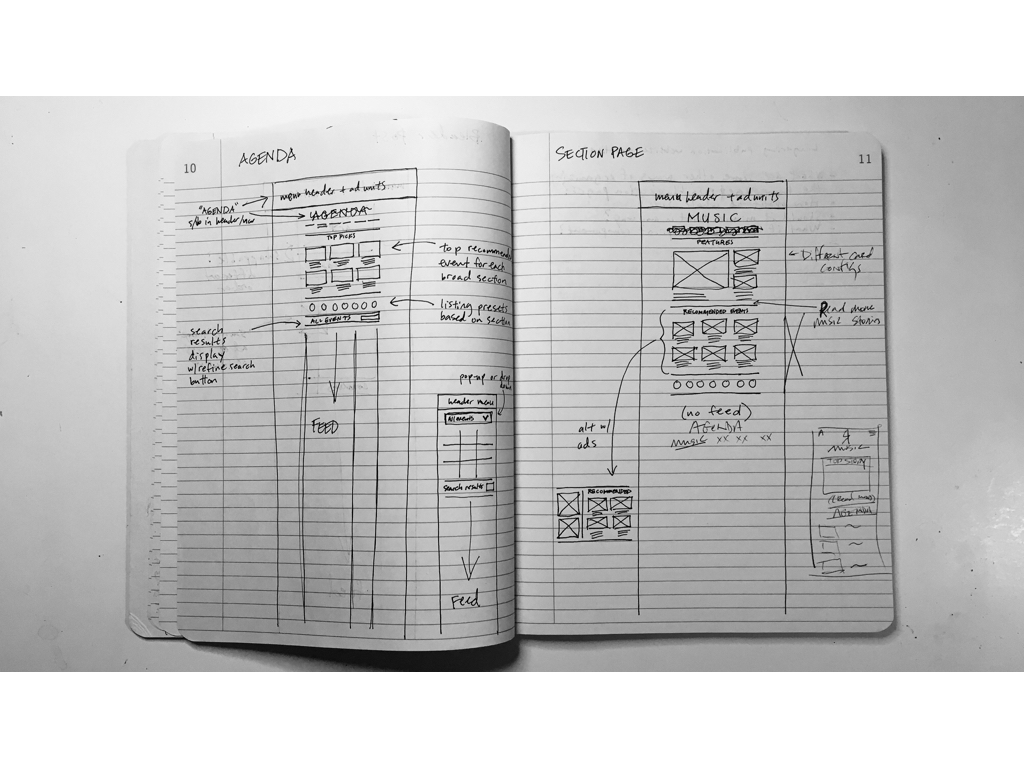 10
AGENDA
menu header + ad units
"AGENDA"
s/b in header/nav
AGENDA
TOP PICKS
top recommended
event for each
broad section
listing presets
based on section
ALL EVENTS
search
results
display
w/refine search
button
FEED
pop-up or drop
down
header menu
All events
search results
Feed
SECTION PAGE
11
menu header + ad units
MUSIC
FEATURES
Different card
configs
RECOMMENDED EVENTS
Read more
music stories
(no feed)
AGENDA
music xx xx xx
alt w/
ads
RECOMMENDED
MUSIC
TOP STORY
(Read more)